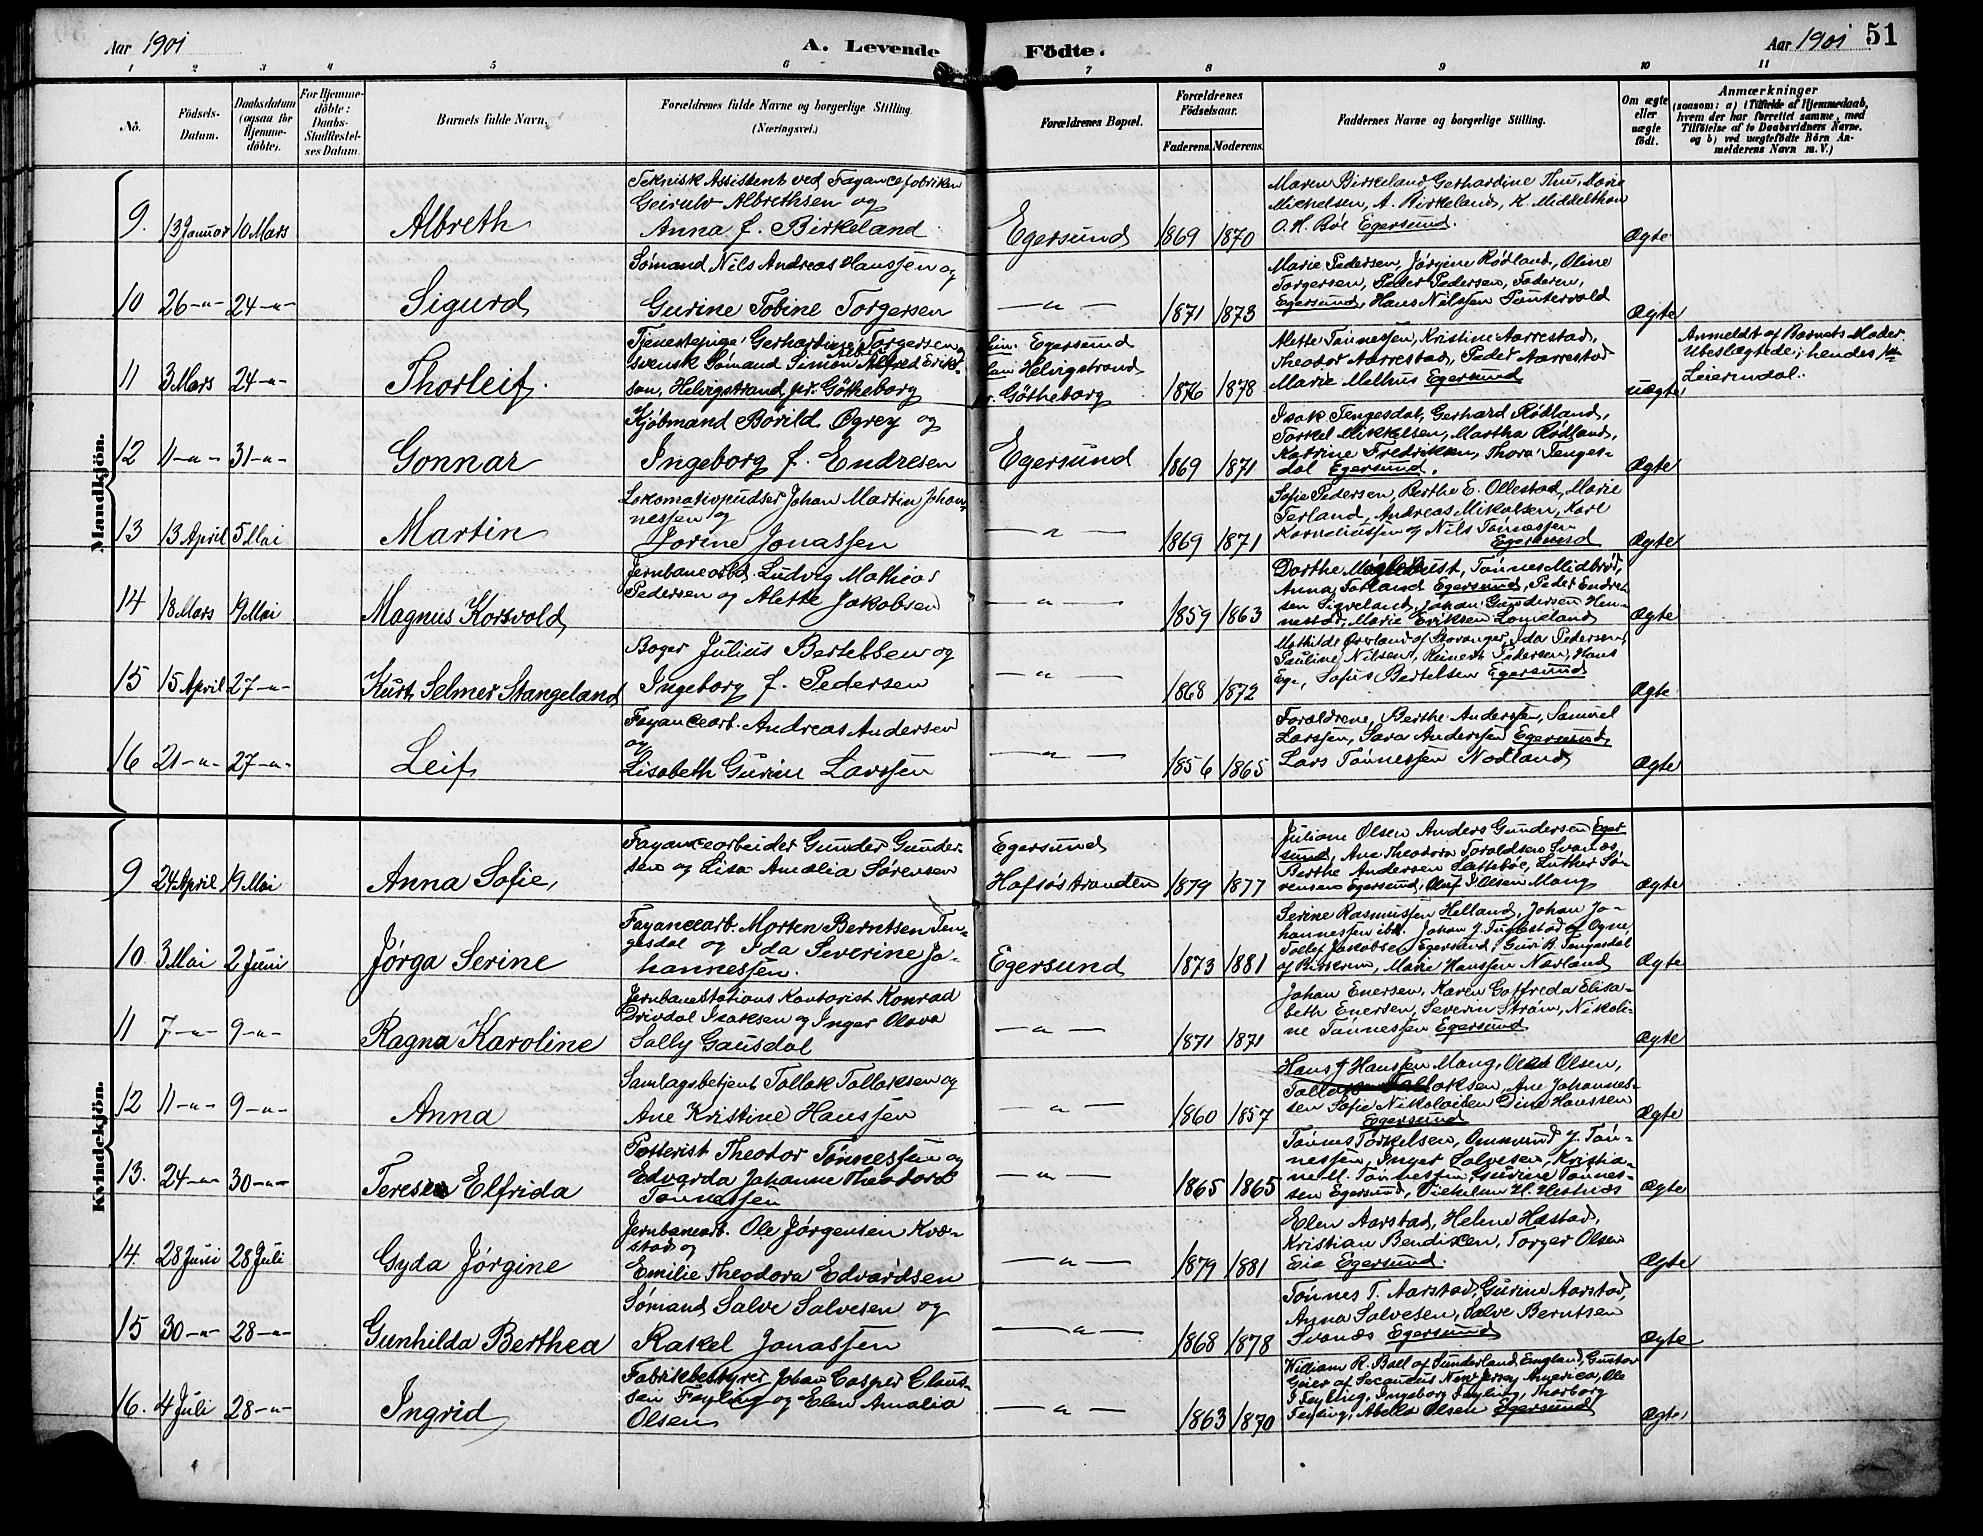 Aar 1901
A. Levende Födte.
Aar 1901
51
1 2 3 4 5 6 7 8 9 10 11
No.
Födsels-
Datum.
Daabsdatum
(ogsaa for
Hjemme-
döbte).
For Hjemme-
döbte:
Daabs-
Stadfæstel-
ses Datum.
Barnets fulde Navn.
Forældrenes fulde Navne og borgerlige Stilling.
(Næringsvei.)
Forældrenes Bopæl.
Forældrenes
Födselsaar.
Faderens. Moderens.
Faddernes Navne og borgerlige Stilling.
Om ægte
eller
uægte
födt.
Anmærkninger
(saasom: a) i Tilfælde af Hjemmedaab,
hvem der har forrettet samme, med
Tilföielse af to Daabsvidners Navne.
og b) ved uægtefödte Börn An-
melderens Navn m. V.)
Mandkjön.
9. 13 Januar 10 Mars
Albreth
Teknisk Assistent ved Fayancefabriken
Geirulv Albrethsen og
Anna f. Birkeland
Egersund
1869 1870
Maren Birkeland, Gerhardine Thu, Marie
Michelsen, A. Birkeland, K. Middelthon
O. H. Böe Egersund.
Ægte
10 26 -"- 24 -"-
Sigurd
Sømand Nils Andreas Hanssen og
Gurine Tobine Torgersen
— " —
1871 1873
Marie Pedersen, Jørgine Rødland, Oline
Torgersen, Peder Pedersen, Faderen,
Egersund, Hans Nilssen Puntervold
Ægte
11 3 Mars 24 -"-
Thorleif.
Tjenestepige Gerhardine Torgersen
svensk Sømand Simon Alfred Eriks-
son, Helvigstrand pr. Götheborg
Hun: Egersund
Han Helvigstrand
pr. Götheborg
1876 1878
Alette Tønnessen, Kristine Aarrestad,
Theodor Aarrestad, Peder Aarrestad
Marie Melhus Egersund
uægte
Anmeldt af Barnets Moder.
Ubeslægtede; hendes 1ste
Leiermaal.
12 11 -"- 31 -"-
Gonnar
Kjöbmand Børild Øgrey og
Ingeborg f. Endresen
Egersund
1869 1871
Isak Tengesdal, Gerhard Rødland,
Torkel Mikkelsen, Martha Rødland,
Katrine Fredriksen, Thora Tenges-
dal Egersund.
Ægte
13 13 April 5 Mai
Martin
Lokomativpudser Johan Martin Johan-
nessen og
Jorine Jonassen
— " —
1869 1871
Sofie Pedersen, Berthe E. Ollestad, Marie
Terland, Andreas Mikalsen, Karl
Korneliussen og Nils Tønnessen
Egersund
Ægte
14 18 Mars 19 Mai
Magnus Korsvold
Jernbanearbd. Ludvig Mathias
Pedersen og Alette Jakobsen
— " —
1859 1863
Dorthe Møglebust, Tønnes Midbrød,
Anna Fotland Egersund, Peder Endre-
sen Sigveland, Johan Gundersen Hen-
nestad, Marie Eriksen Lomeland
Ægte
15 15 April 27 -"-
Kurt Selmer Stangeland
Bager Julius Bertelsen og
Ingeborg f. Pedersen
— " —
1868 1872
Mathilde Øverland af Stavanger, Ida Pedersen,
Pauline Nilsen, Reinert Pedersen, Hans
Ege, Sofus Bertelsen Egersund
Ægte
16 21 -"- 27 -"-
Leif
Fayancearb. Andreas Andersen
og
Lisabeth Gurine Larssen
— " —
1856 1865
Forældrene, Berthe Anderssen, Samuel
Larssen, Sara Anderssen Egersund,
Lars Tønnessen Nodland
Ægte
Kvindekjön.
9 24 April 19 Mai
Anna Sofie,
Fayancearbeider Gunder Gunder-
sen og Lisa Amalia Sørensen
Egersund
Hafsøstranden
1879 1877
Juliane Olsen Anders Gundersen Eger-
sund, Ane Theodora Toraldsen Svanæs,
Berthe Andersen Lættebøe, Luther Sø-
rensen Egersund, Oluf P. Olsen Mong
Ægte
10. 3 Mai 2 Juni
Jørga Serine
Fayancearb. Morten Berntsen Ten-
gesdal og Ida Severine Jo-
hannessen.
Egersund
1873 1881
Serine Rasmussen Helland, Johan Jo-
hannessen ibd. Johan J. Tuflestad af Ogne,
Tollef Jakobsen Egersund, Guri B. Tengesdal
af Birkrem, Marie Hanssen Nodland
Ægte
11 7 -"- 9 -"-
Ragna Karoline
Jernbanestations Kontorist Konrad
Drivdal Isaksen og Inger Olava
Sally Gausdal
— " —
1871 1871
Johan Enersen, Karen Gotfreda Elisa-
beth Enersen, Severin Strøm, Nikoli-
ne Tønnessen Egersund
Ægte
12 11 -"- 9 -"-
Anna
Samlagsbetjent Tollak Tollaksen og
Ane Kristine Hanssen
— " —
1860 1857
Hans J Hanssen Mong, Olea Olsen,
Tollak Tollaksen, Ane Johannes-
sen Sofie Nikolaisen Dina Hanssen
Egersund
Ægte
13. 24 -"- 30 -"-
Teresia Elfrida
Potterist Theodor Tønnessen og
Edvarda Johanne Theodora
Tønnessen
— " —
1865 1865
Tønnes Torkelsen, Ommund J. Tøn-
nessen, Inger Salvesen, Kristia-
ne M. Tønnessen, Gurine Tønnes-
sen Egersund, Vilhelm H. Hestnæs
Ægte
14. 28 Juni 28 Juli
Gyda Jørgine
Jernbanearb. Ole Jørgensen Kvæ-
stad og
Emilie Theodora Edvardsen
— " —
1879 1881
Elen Aarstad, Helene Hæstad,
Kristian Bendixen, Torger Olsen
Eie Egersund.
Ægte
15 30 -"- 28 -"-
Gunhilda Berthea
Sømand Salve Salvesen og
Rakel Jonassen
— " —
1868 1878
Tønnes T. Aarstad, Gurine Aarstad,
Anna Salvesen, Salve Berntsen
Svanæs Egersund
Ægte
16. 4 Juli 28 -"-
Ingrid
Fabrikbestyrer Johan Casper Claus-
sen Feyling og Elen Amalia
Olsen
— " —
1863 1870
William R. Ball af Sunderland, England, Gustav
Geier af Secaucus New Jersey America, Ole
J Feyling, Ingeborg Feyling, Thorborg
Feyling, Abella Olsen Egersund
Ægte